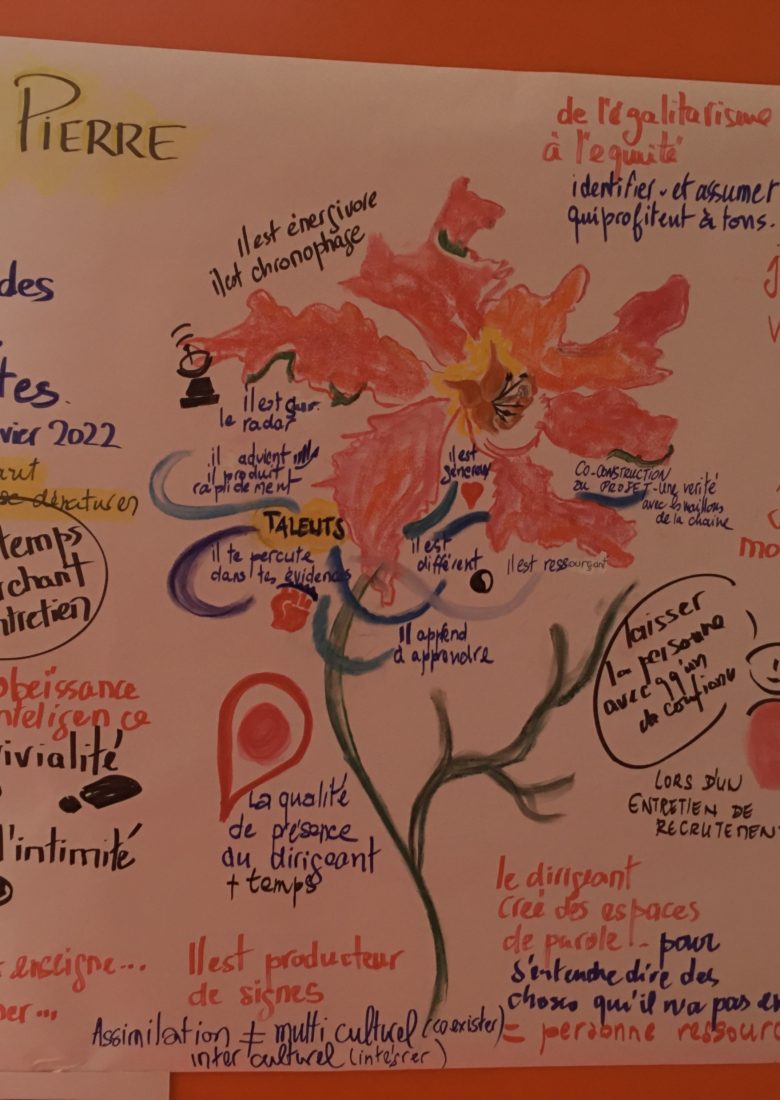 PIERRE
de l'égalitarisme
à l'equité
identifier - et assumer
qui profitent à tous.
il est énergivore
il est chronophage
des
tes.
vier 2022
dénaturer
temps
rchant
ntretien
il est
le radar
il advient
il produit
rapidement
il est
généreux
CO-CONSTRUCTION
DU PROJET - une verité
avec les maillons
de la chaine
TALENTS
il te percute
dans tes évidences
il est
différent
il est ressourçant
il apprend
à apprendre
laisser
la personne
avec qq'un
de confiance
LORS D'UN
ENTRETIEN DE
RECRUTEMENT
obeissance
intelligence
vivialité
l'intimité
La qualité
de présence
du dirigeant
+ temps
le dirigeant
creé des espaces
de parole - pour
s'entendre dire des
choses qu'il n'a pas en
= personne ressourc
enseigne...
er...
Il est producteur
de signes
Assimilation ≠ multi culturel (coexister)
inter culturel (intégrer)
mo